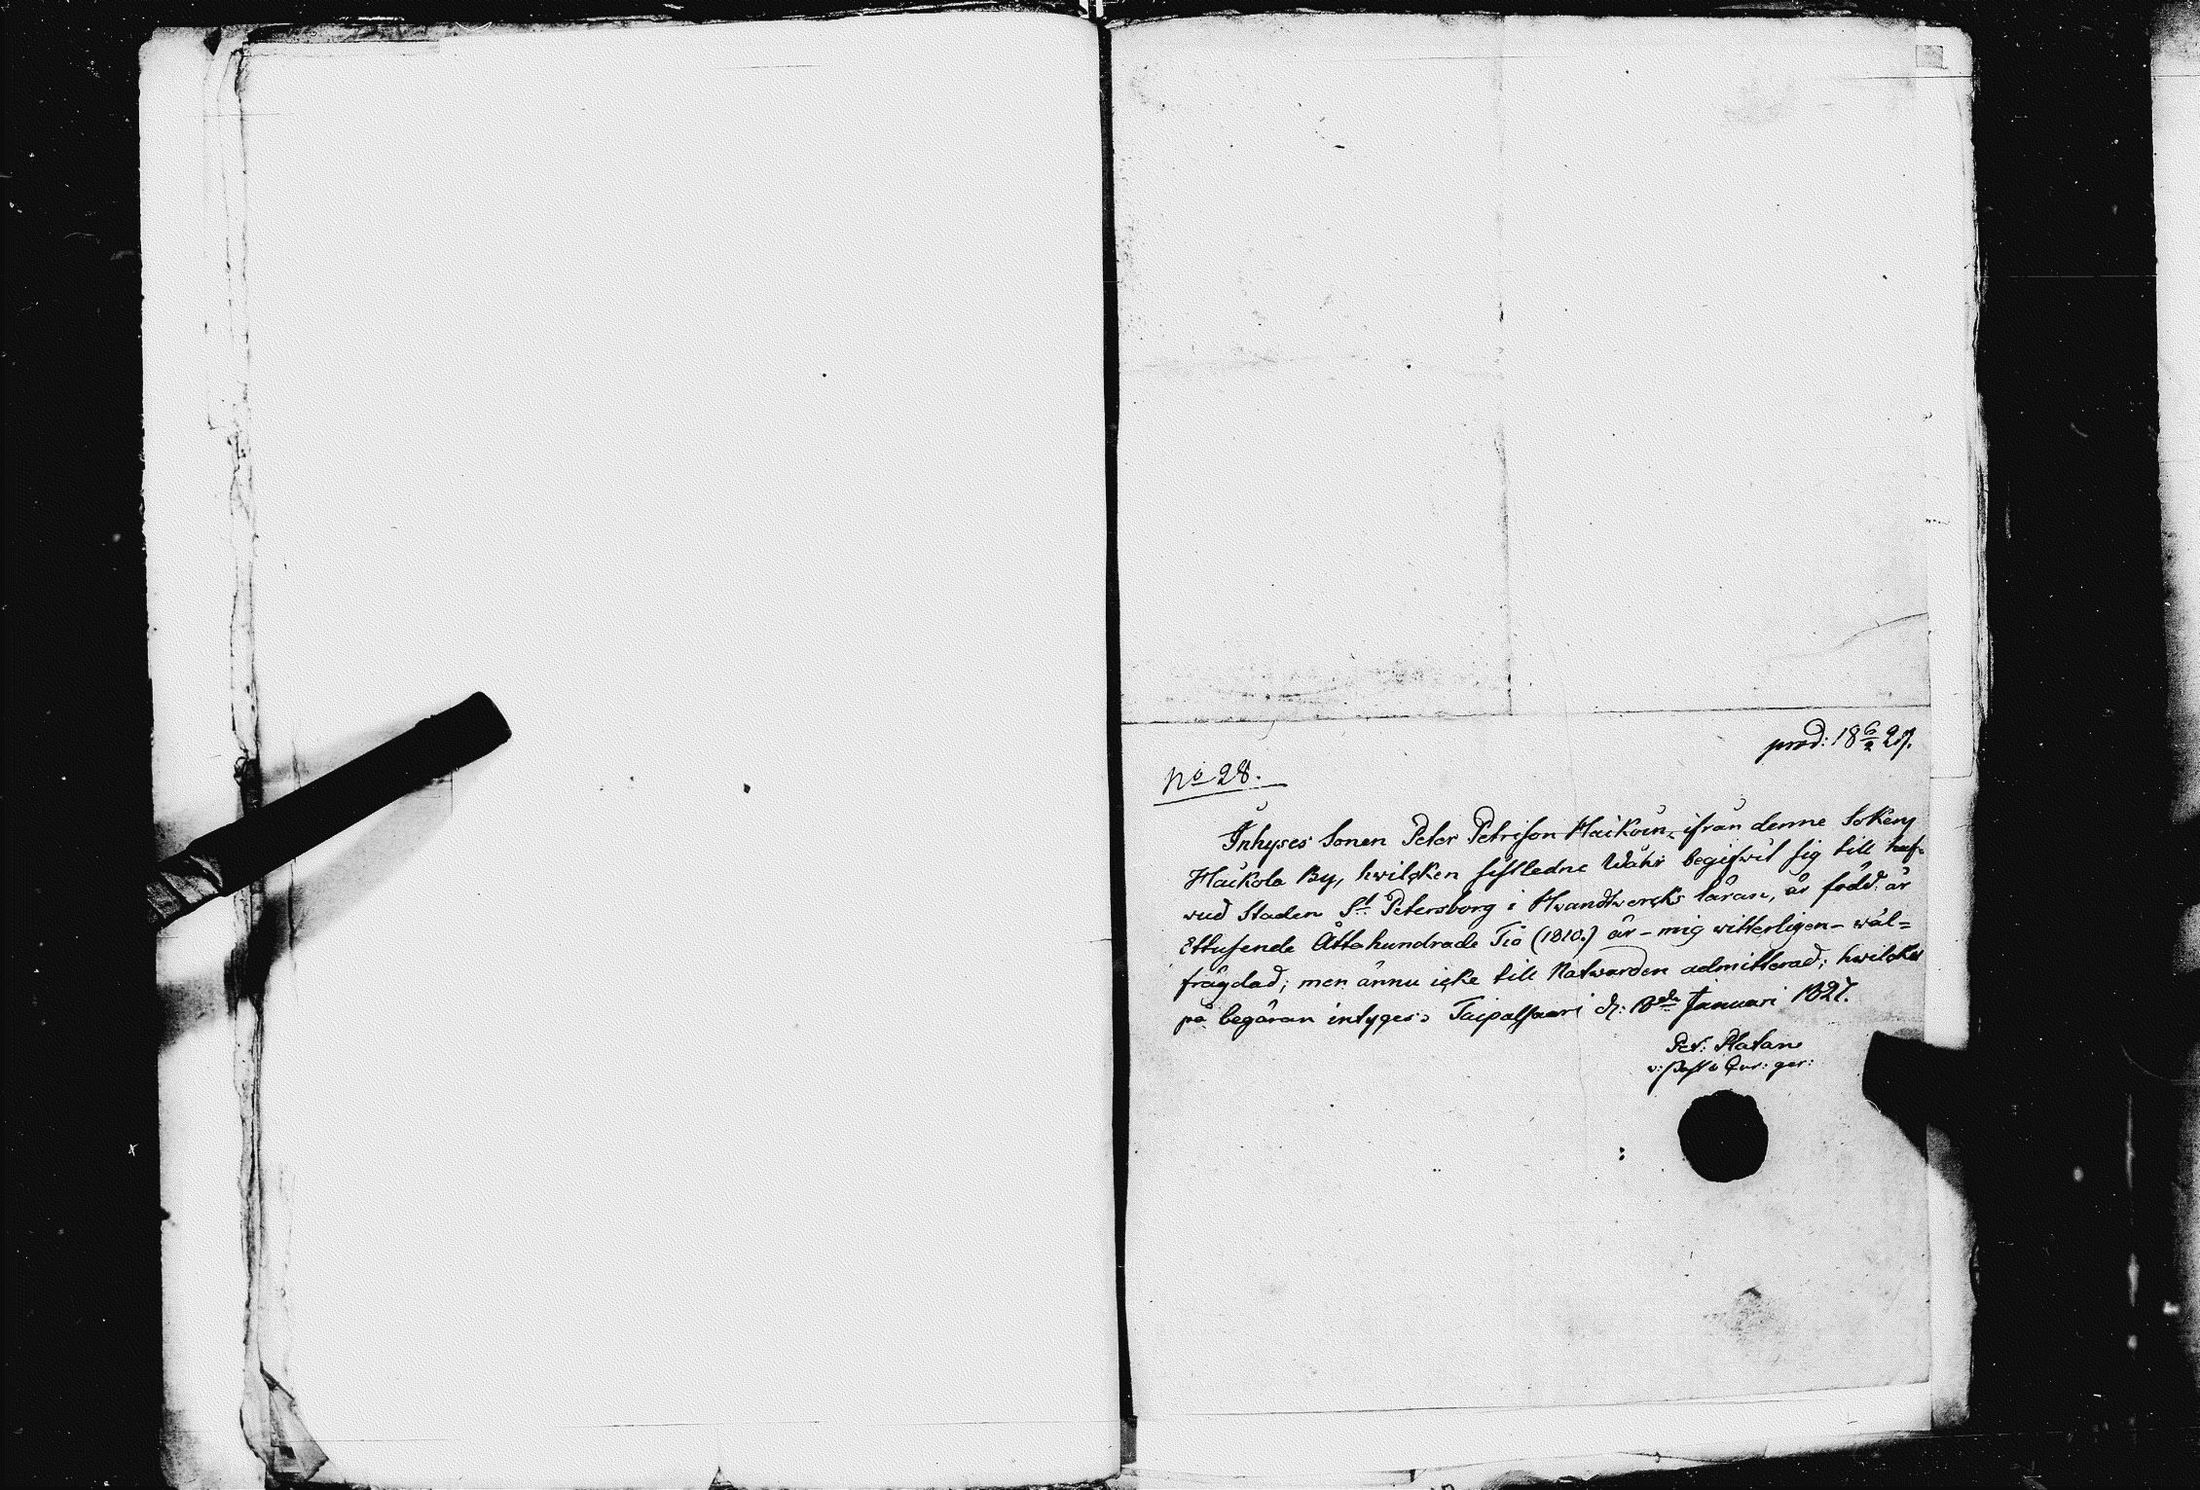 prod: 18 6/2 27.
No 28.
Inhyses Sonen Peter Petrison Haikoin, ifrån denne Sokens
Haikola By, hvilcken sistledne Wåhr begifvit sig till huf-
vud Staden St. Petersborg i Hvandtvercks läran, är född år
Ettusende Åttahundrade Tio (1810.) är - mig vitterligen - wäl=
frägdad; men ännu icke till Natwarden admitterad; hwilcket
på begäran intyges. Taipalsaari d: 18de Januari 1827.
Pet: Platan
v: Past: o Cur: ger: